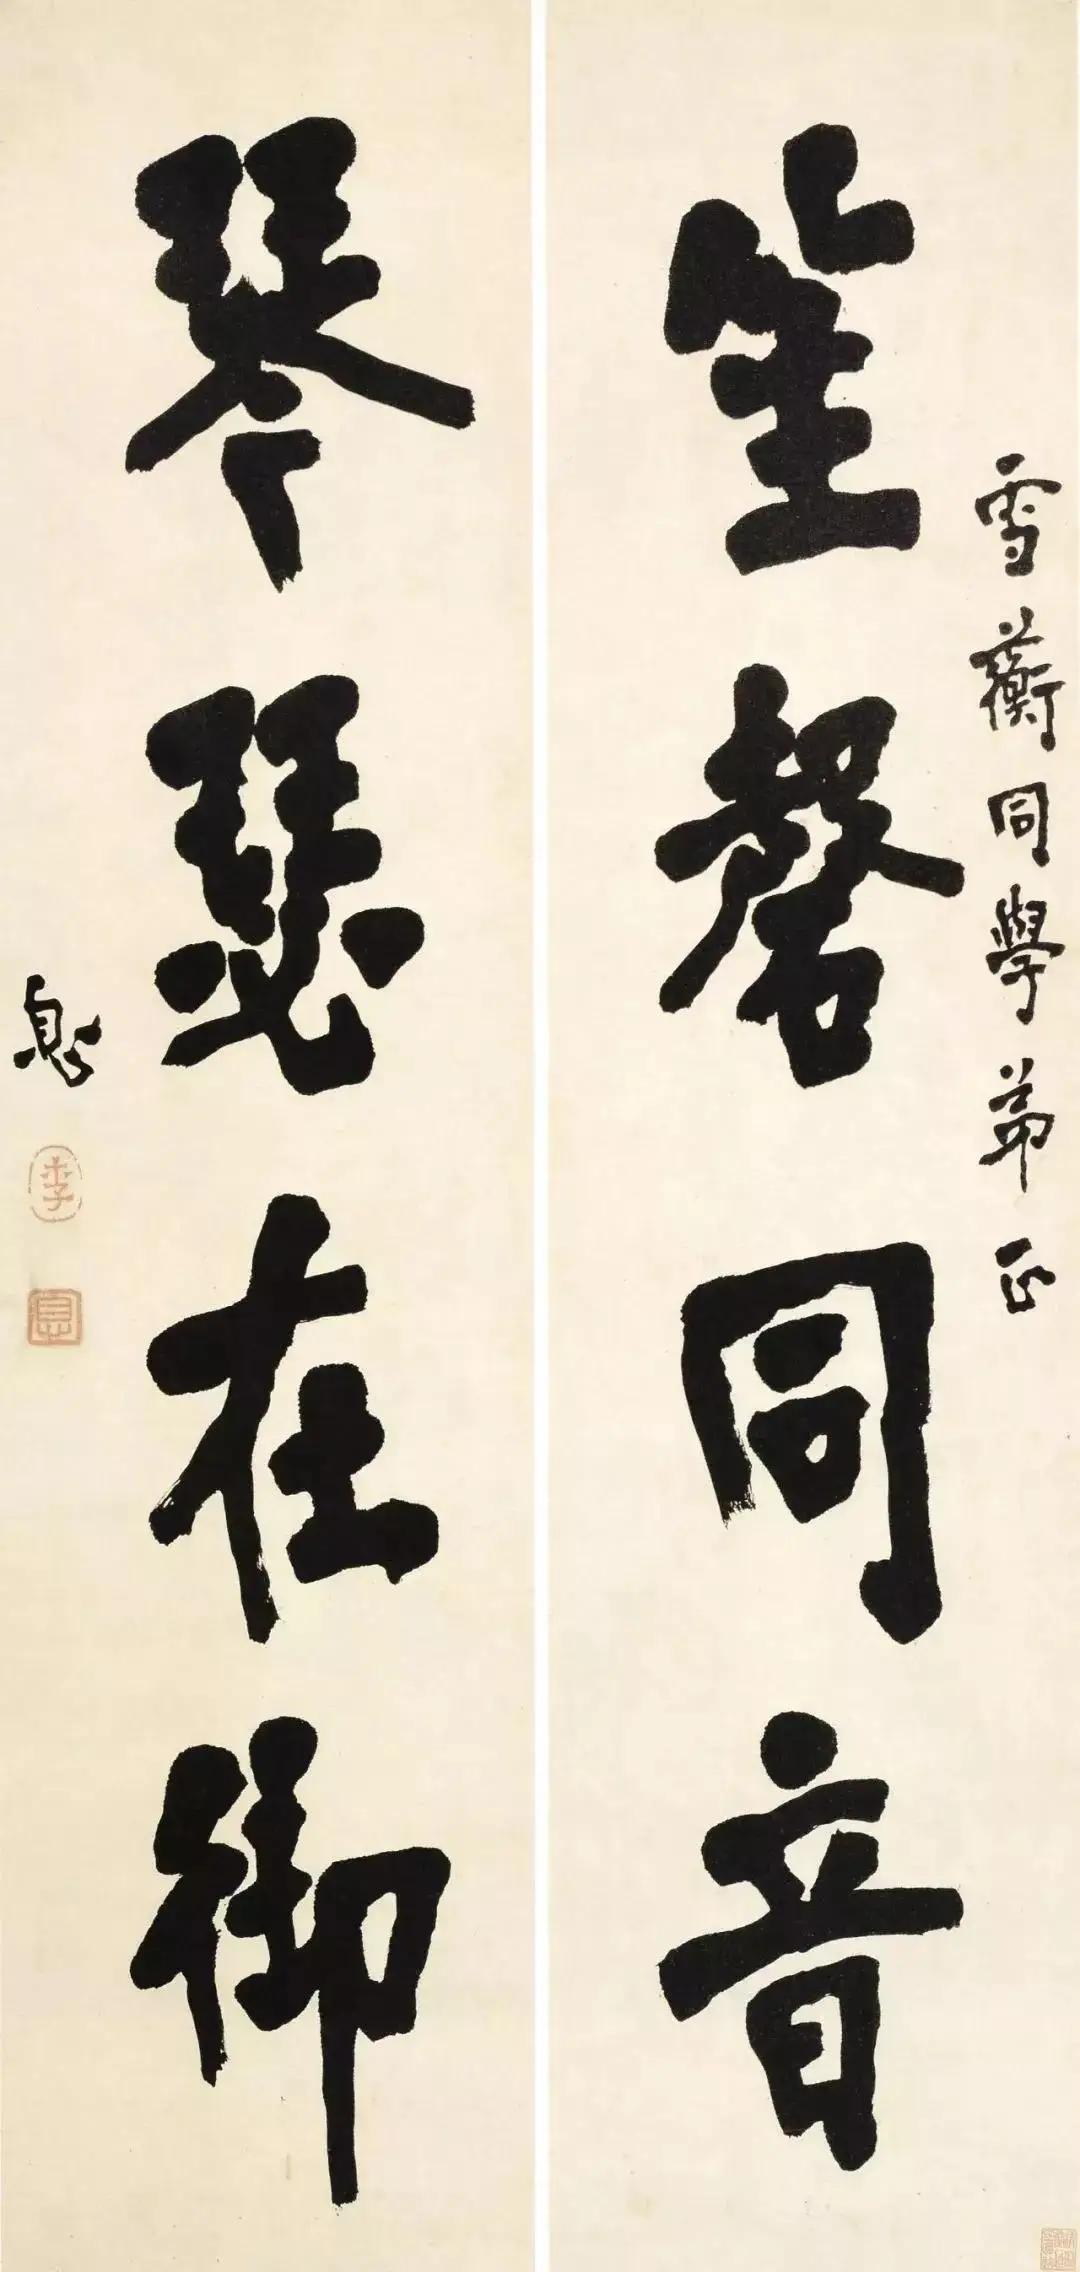 雪蘅同學弟正
笙磬同音
琴瑟在御
息
李
息